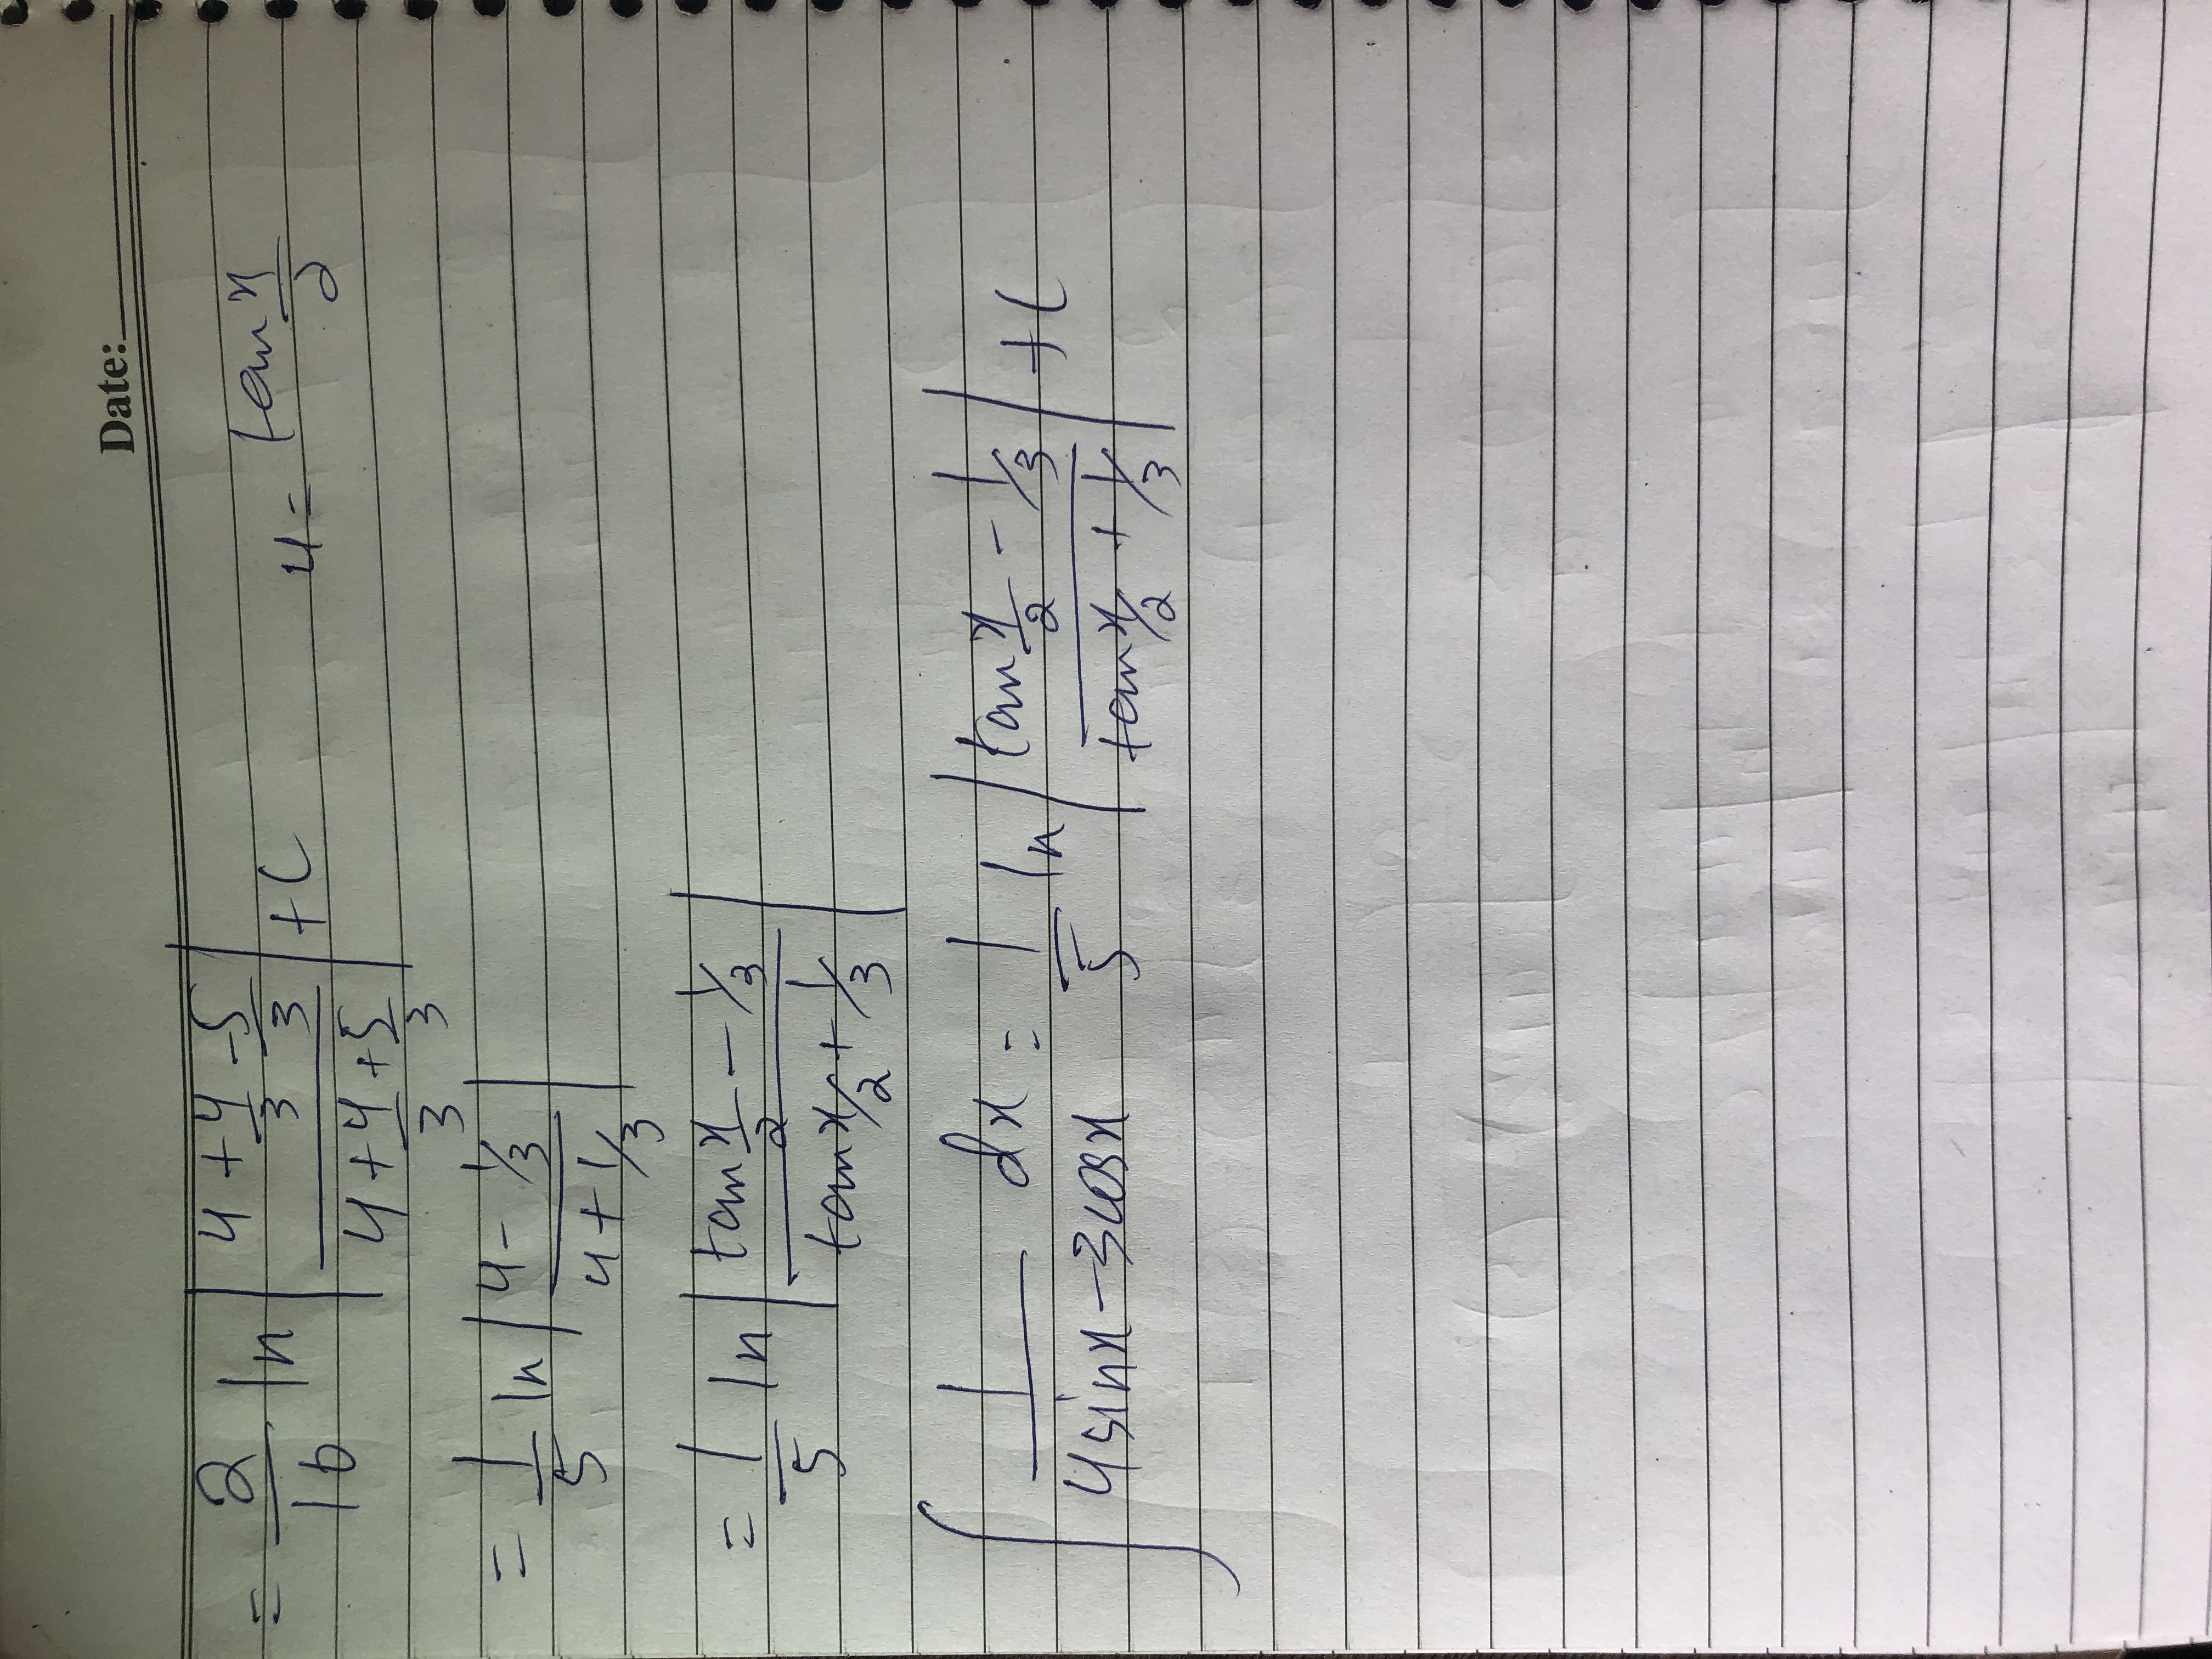 Date:
= 2/10 ln | (u + 4/3 - 5/3) / (u + 4/3 + 5/3) | + C u = tan x/2
= 1/5 ln | (u - 1/3) / (u + 1/3) |
= 1/5 ln | (tan x/2 - 1/3) / (tan x/2 + 1/3) |
∫ 1/(4sinx - 3cosx) dx = 1/5 ln | (tan x/2 - 1/3) / (tan x/2 + 1/3) | + C